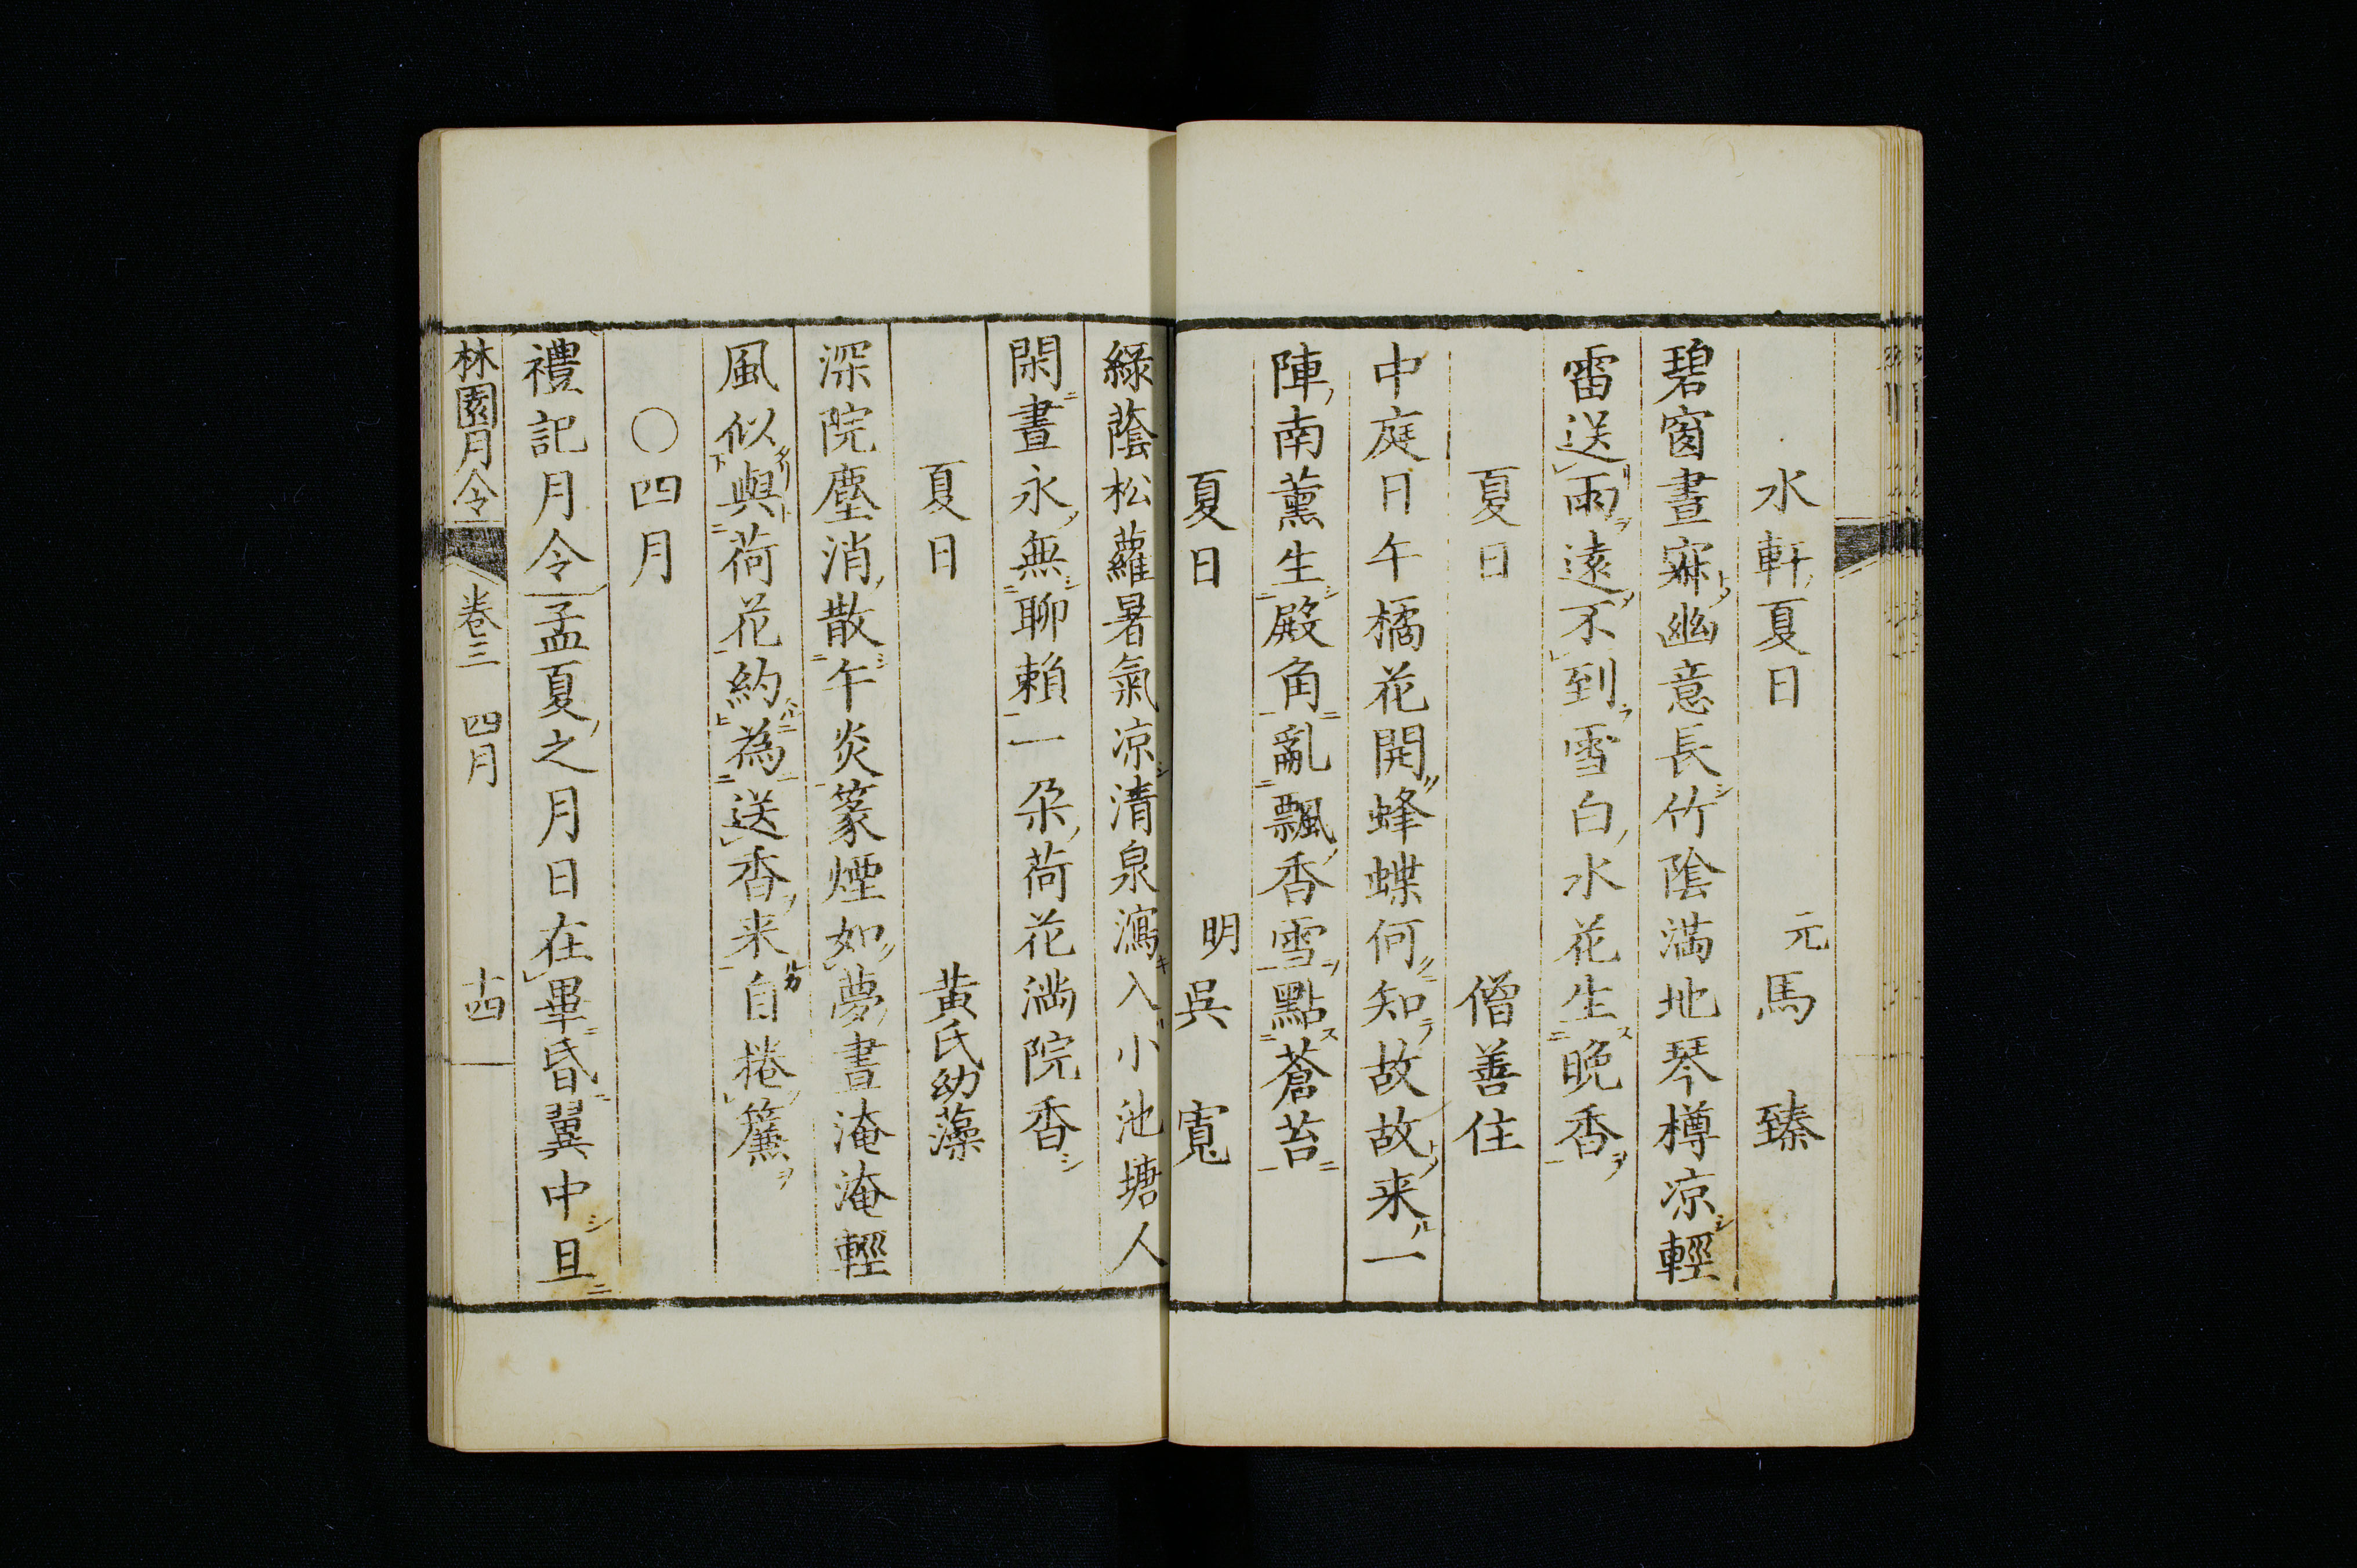 水軒夏日　元馬臻
碧窗晝寐幽意長竹陰満地琴樽凉輕
雷送雨遠不到雪白水花生晚香
夏日　僧善住
中庭日午橘花開蜂蝶何知故故来一
陣南薫生殿角亂飄香雪點蒼苔
夏日　明吳寬
綠蔭松蘿暑氣凉清泉瀉入小池塘人
閑晝永無聊賴一朶荷花満院香
夏日　黄氏幼藻
深院塵消散午炎篆煙如夢晝淹淹輕
風似與荷花約為送香来自捲簾
〇四月
禮記月令孟夏之月日在畢昏翼中旦
林園月令　卷三　四月　十四